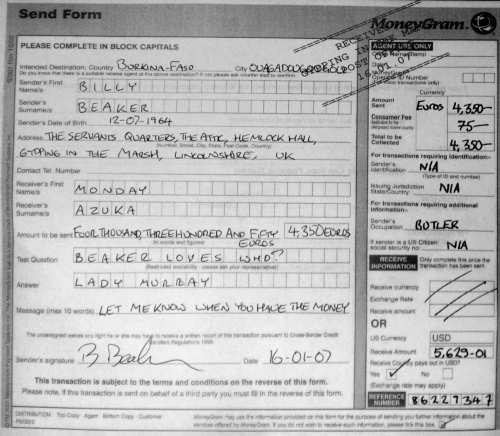 Send Form
MoneyGram
PLEASE COMPLETE IN BLOCK CAPITALS
Intended Destination: Country BURKINA-FASO City OUAGADOUGOU
Sender's First Name/s BILLY
Sender's Surname/s BEAKER
Sender's Date of Birth 12-07-1964
Address THE SERVANTS QUARTERS, THE ATTIC, HEMLOCK HALL,
(Number, Street, City, State, Post Code, Country)
GYPPING IN THE MARSH, LINCOLNSHIRE, UK
Contact Tel. Number
Receiver's First Name/s MONDAY
Receiver's Surname/s AZUKA
Amount to be sent FOUR THOUSAND, THREE HUNDRED AND FIFTY EUROS 4,350 EUROS
(in words and figures)
Test Question BEAKER LOVES WHO?
Answer LADY MURRAY
Message (max 10 words) LET ME KNOW WHEN YOU HAVE THE MONEY
Sender's signature Date 16-01-07
This transaction is subject to the terms and conditions on the reverse of this form.
Please note, if this transaction is sent on behalf of a third party you must fill in the reverse of this form.
DISTRIBUTION Top Copy Agent Bottom Copy Customer
MoneyGram may use the information provided on this form for the purpose of sending you further information about the
services offered by MoneyGram. If you do not wish to receive such information, please tick this box.
RECEIVED
16.01.07
AGENT USE ONLY
Currency
Amount Sent Euros 4,350-
Consumer Fee 75-
Total to be Collected 4,350-
For transactions requiring identification:
Sender's Identification N/A
(Type of ID and number)
Issuing Jurisdiction State/Country: N/A
For transactions requiring additional information:
Sender's Occupation BUTLER
If sender is a US Citizen: social security no N/A
RECEIVE INFORMATION Only complete this once the transaction has been sent.
Receive currency
Exchange Rate
Receive amount
OR
US Currency USD
Receive Amount 5,629-01
Receive County pays out in USD?
Yes No
(Exchange rate may apply)
REFERENCE NUMBER 86227347